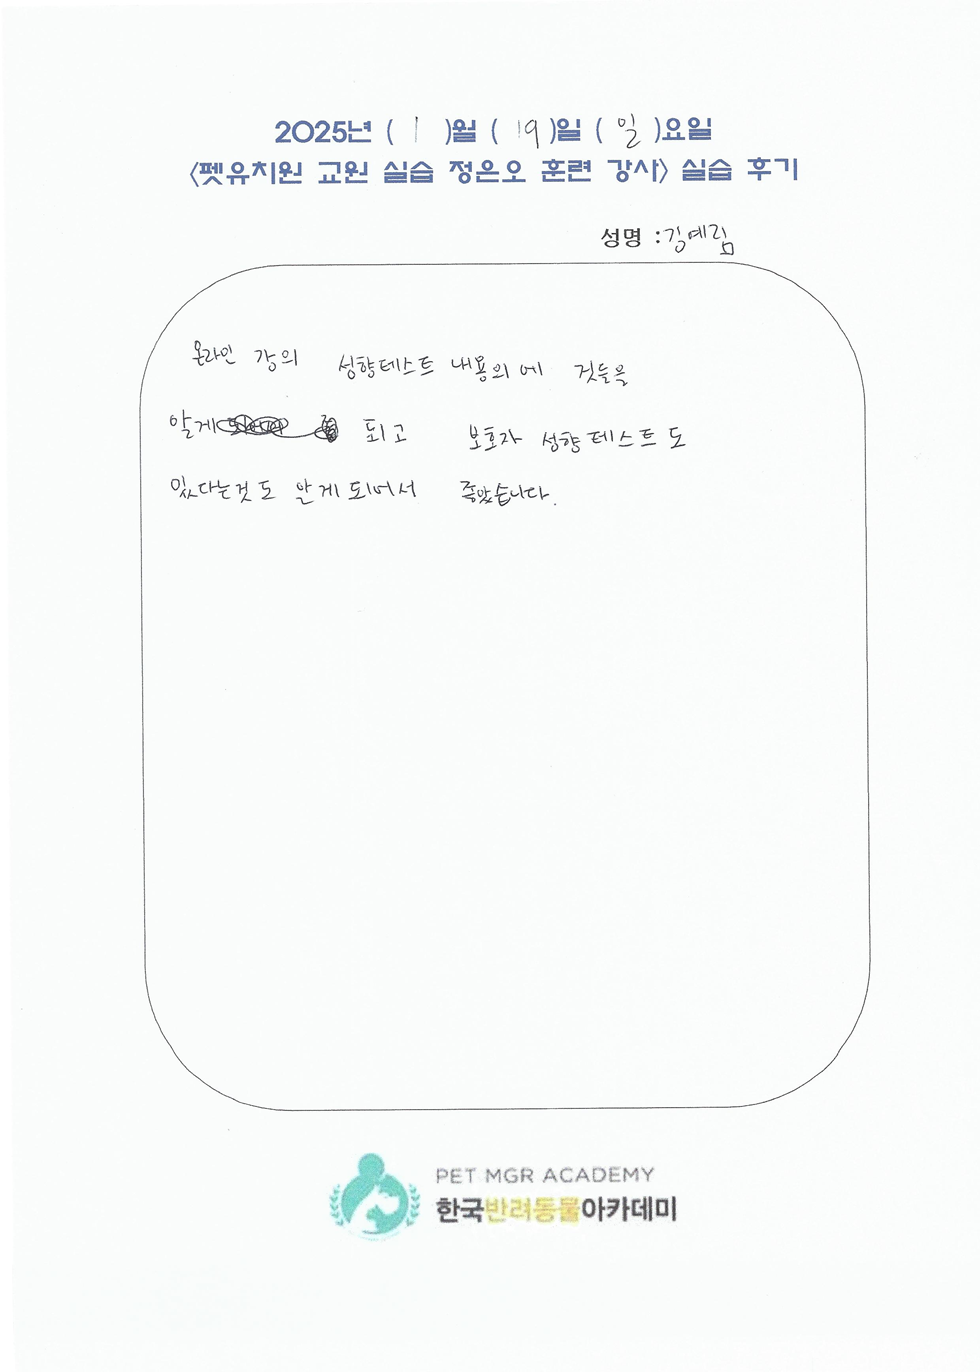 2025년 ( 1 )월 ( 19 )일 ( 일 )요일
<펫유치원 교원 실습 정은오 훈련 강사> 실습 후기
성명 : 김예림
온라인 강의 성향테스트 내용의에 것들을
알게 되고 보호자 성향테스트도
있다는것도 알게되어서 좋았습니다.
PET MGR ACADEMY
한국반려동물아카데미